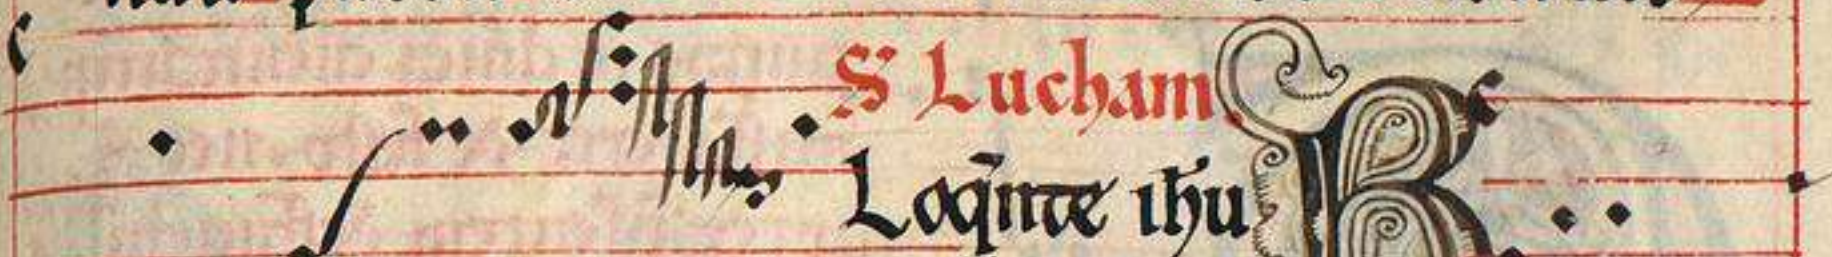 S Lucham
Loq̄nte ihu B